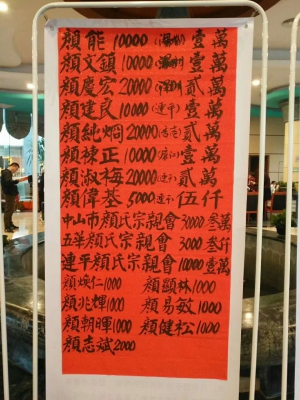 顏能 10000 壹萬
顏文鎮 10000 壹萬
顏慶宏 20000 貳萬
顏建良 10000 (連平) 壹萬
顏純炯 20000 貳萬
顏棟正 10000 壹萬
顏淑梅 20000 (連平) 貳萬
顏偉基 5000 (連平) 伍仟
中山市顏氏宗親會 30000 叁萬
五華顏氏宗親會 3000 叁仟
連平顏氏宗親會 10000 壹萬
顏煥仁 1000 顏顯林 1000
顏兆輝 1000 顏易敏 1000
顏朝暉 1000 顏健松 1000
顏志斌 2000